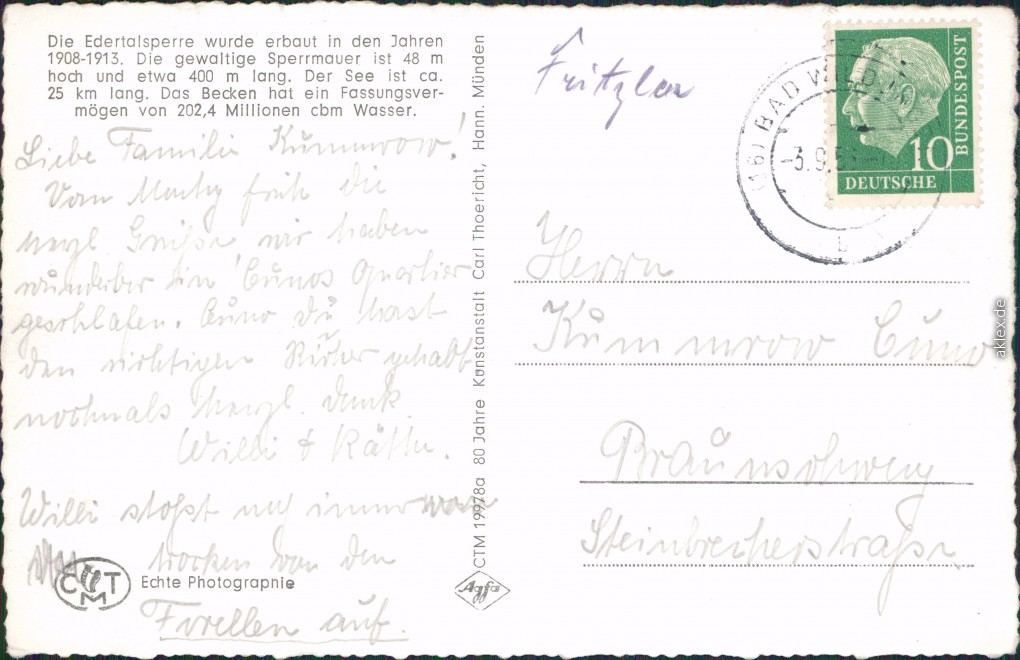 Die Edertalsperre wurde erbaut in den Jahren
1908-1913. Die gewaltige Sperrmauer ist 48 m
hoch und etwa 400 m lang. Der See ist ca.
25 km lang. Das Becken hat ein Fassungsver-
mögen von 202,4 Millionen cbm Wasser.
Liebe Familie Kummrow!
Vom früh die
herzl. Grüße wir haben
wunderbar in Cunos Quartier
geschlafen. Cuno Du hast
den richtigen gehabt
nochmals herzl. Dank
Willi & Käthe.
Willi immer
trocken von den
Forellen auf.
CMT
Echte Photographie
CTM 19978a 80 Jahre Kunstanstalt Carl Thoericht, Hann. Münden
Agfa
Fritzlar
(16) BAD
-3.9.5
DEUTSCHE
BUNDESPOST
10
Herrn
Kummrow Cuno
Braunschweig
Steinbrecherstraße
aklex.de